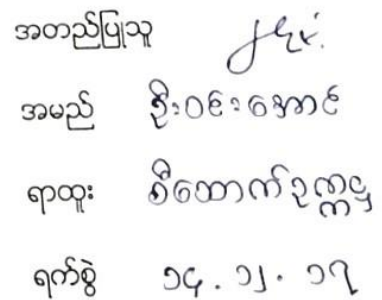 အတည်ပြုသူ
အမည် ဦးဝင်းအောင်
ရာထူး စီထောက်ဥက္ကဋ္ဌ
ရက်စွဲ ၁၄.၁၂.၁၇